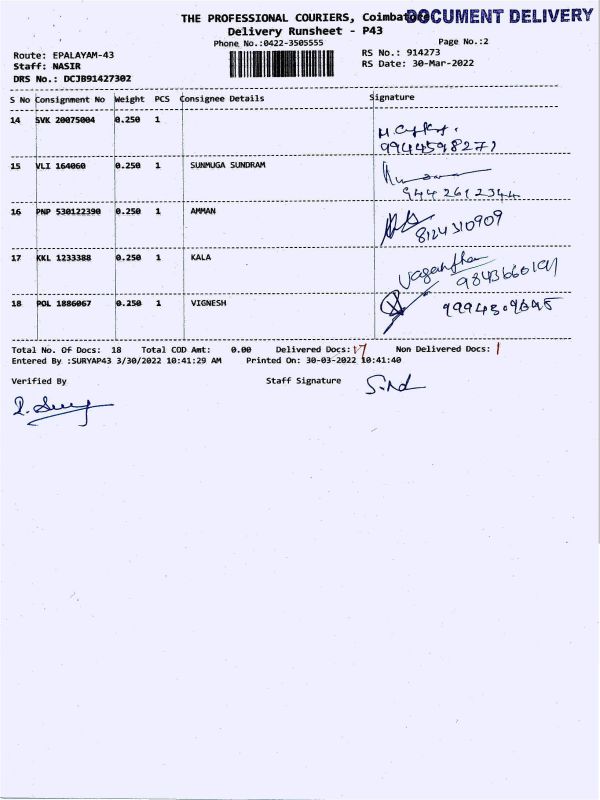 THE PROFESSIONAL COURIERS, Coimbatore
DOCUMENT DELIVERY
Delivery Runsheet - P43
Phone No.:0422-3505555
Page No.:2
Route: EPALAYAM-43
RS No.: 914273
Staff: NASIR
RS Date: 30-Mar-2022
DRS No.: DCJB91427302
S No Consignment No Weight PCS Consignee Details Signature
14 SVK 20075004 0.250 1
9944598271
15 VLI 164060 0.250 1 SUNMUGA SUNDRAM
9442612344
16 PNP 530122390 0.250 1 AMMAN
8124310909
17 KKL 1233388 0.250 1 KALA
18 POL 1886067 0.250 1 VIGNESH
Total No. Of Docs: 18 Total COD Amt: 0.00 Delivered Docs: 17 Non Delivered Docs: 1
Entered By :SURYAP43 3/30/2022 10:41:29 AM Printed On: 30-03-2022 10:41:40
Verified By Staff Signature